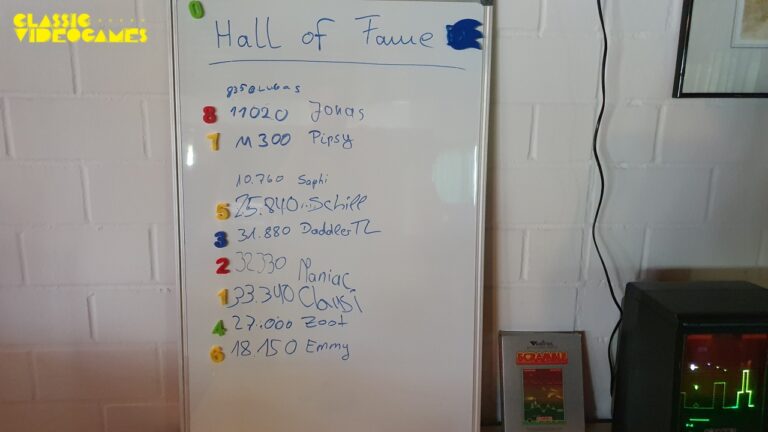 CLASSIC
VIDEOGAMES
0
Hall of Fame
8 11020 Jonas
7 11300 Pipsy
10.760 Saphi
5 25.840 Schill
3 31.880 DaddlerTL
2 32330 Maniac
1 33.340 Clausi
4 27.000 Zoot
6 18.150 Emmy
SCRAMBLE